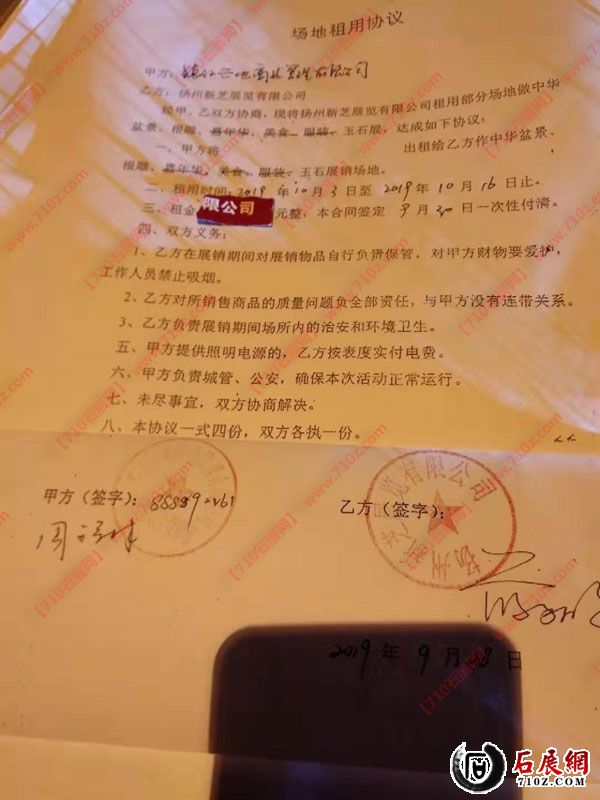 场地租用协议
甲方：镇江 地商业管理有限公司
乙方：扬州新芝展览有限公司
经甲、乙双方协商，现将扬州新芝展览有限公司租用部分场地做中华
盆景、根雕、嘉年华、美食、服装、玉石展，达成如下协议：
一、甲方将 出租给乙方作中华盆景、
根雕、嘉年华、美食、服装、玉石展销场地。
二、租用时间：2019年10月3日至2019年10月16日止。
三、租金 限公司 元整，本合同签定9月30日一次性付清。
四、双方义务：
1、乙方在展销期间对展销物品自行负责保管，对甲方财物要爱护，
工作人员禁止吸烟。
2、乙方对所销售商品的质量问题负全部责任，与甲方没有连带关系。
3、乙方负责展销期间场所内的治安和环境卫生。
五、甲方提供照明电源的，乙方按表度实付电费。
六、甲方负责城管、公安，确保本次活动正常运行。
七、未尽事宜，双方协商解决。
八、本协议一式四份，双方各执一份。
甲方（签字）：88889261
乙方（签字）：
扬州新芝展览有限公司
2019年9月 8日
【710石展网】
www.710z.com
石展網
710Z.COM